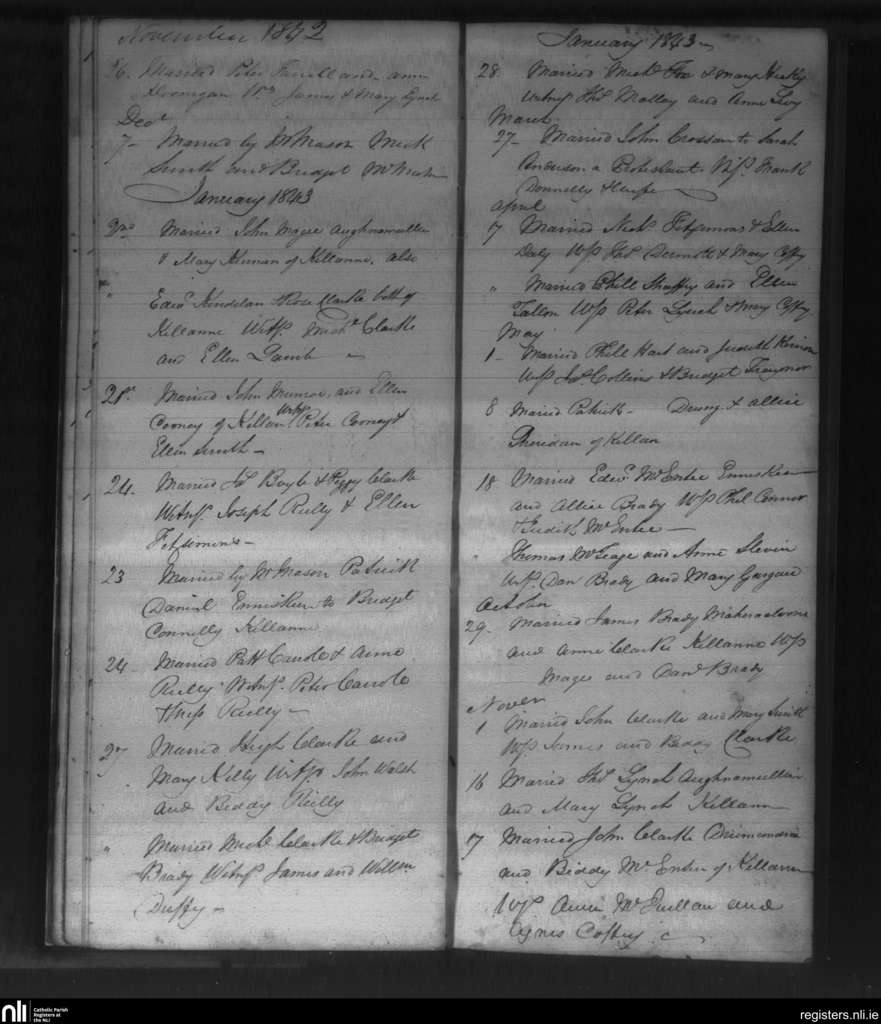 November 1842
26. Married Peter Farrell and Ann
Donnigan Wss James & Mary Lynch
Decr
7- Married by Mr Mason Mick
Smith and Bridget
January 1843
2nd Married John Magee Aughnamullen
& Mary Kiernan of Killanne, also
" Edwd Kindelan & Rose Clarke both of
Killanne Witss. Michl Clarke
and Ellen Lamb -
21st. Married John Munroe, and Ellen
Cooney of Killan Witss Peter Cooney &
Ellen Smith -
24. Married Js Boyle & Peggy Clarke
Witnss. Joseph Reilly & Ellen
Fitzsimons -
23 Married by Mr Mason Patrick
Daniel Enniskeen to Bridget
Connelly Killanne
24 Married Patt Carole & Anne
Reilly Witnss. Peter Carole
& Miss Reilly -
27 Married Hugh Clarke and
Mary Kelly Witss John Walsh
and Biddy Reilly
" Married Michl Clarke & Bridget
Brady Witnss James and Willm
Duffy -
January 1843 -
28. Married Michl Fox & Mary
Witnss Ths Malloy and Anne Levy
March
27- Married John Crossan to Sarah
Anderson a Protestant. Wss. Frank
Donnelly & wife
April
17 Married Nichs Fitzsimons & Ellen
Daly Wss Ths Dermott & Mary Coffey
" Married Phill Shaffry and Ellen
Fallon Wss Peter Lynch & Mary Coffey
May
1- Married Phill Hart and Judith
Wss Js Collins & Bridget Traynor
8 Married Patrick - Denny & Allice
Sheridan of Killan
18 Married Edwd McEntee Enniskeen
and Allice Brady Wss Phil Connor
& Judith McEntee -
" Thomas McTeage and Anne Slevin
Wss. Dan Brady and Mary Gargan
October
29. Married James Brady
and Anne Clarke Killanne Wss
Magee and Danl Brady
Nover
1 Married John Clarke and Mary Smith
Wss James and Biddy Clarke
16 Married Ths Lynch Aughnamullen
and Mary Lynch Killann
17 Married John Clarke
and Biddy McEntee of Killann
Wss. Anne McQuillan and
Agnes Coffey
nli
Catholic Parish
Registers at
the NLI
registers.nli.ie